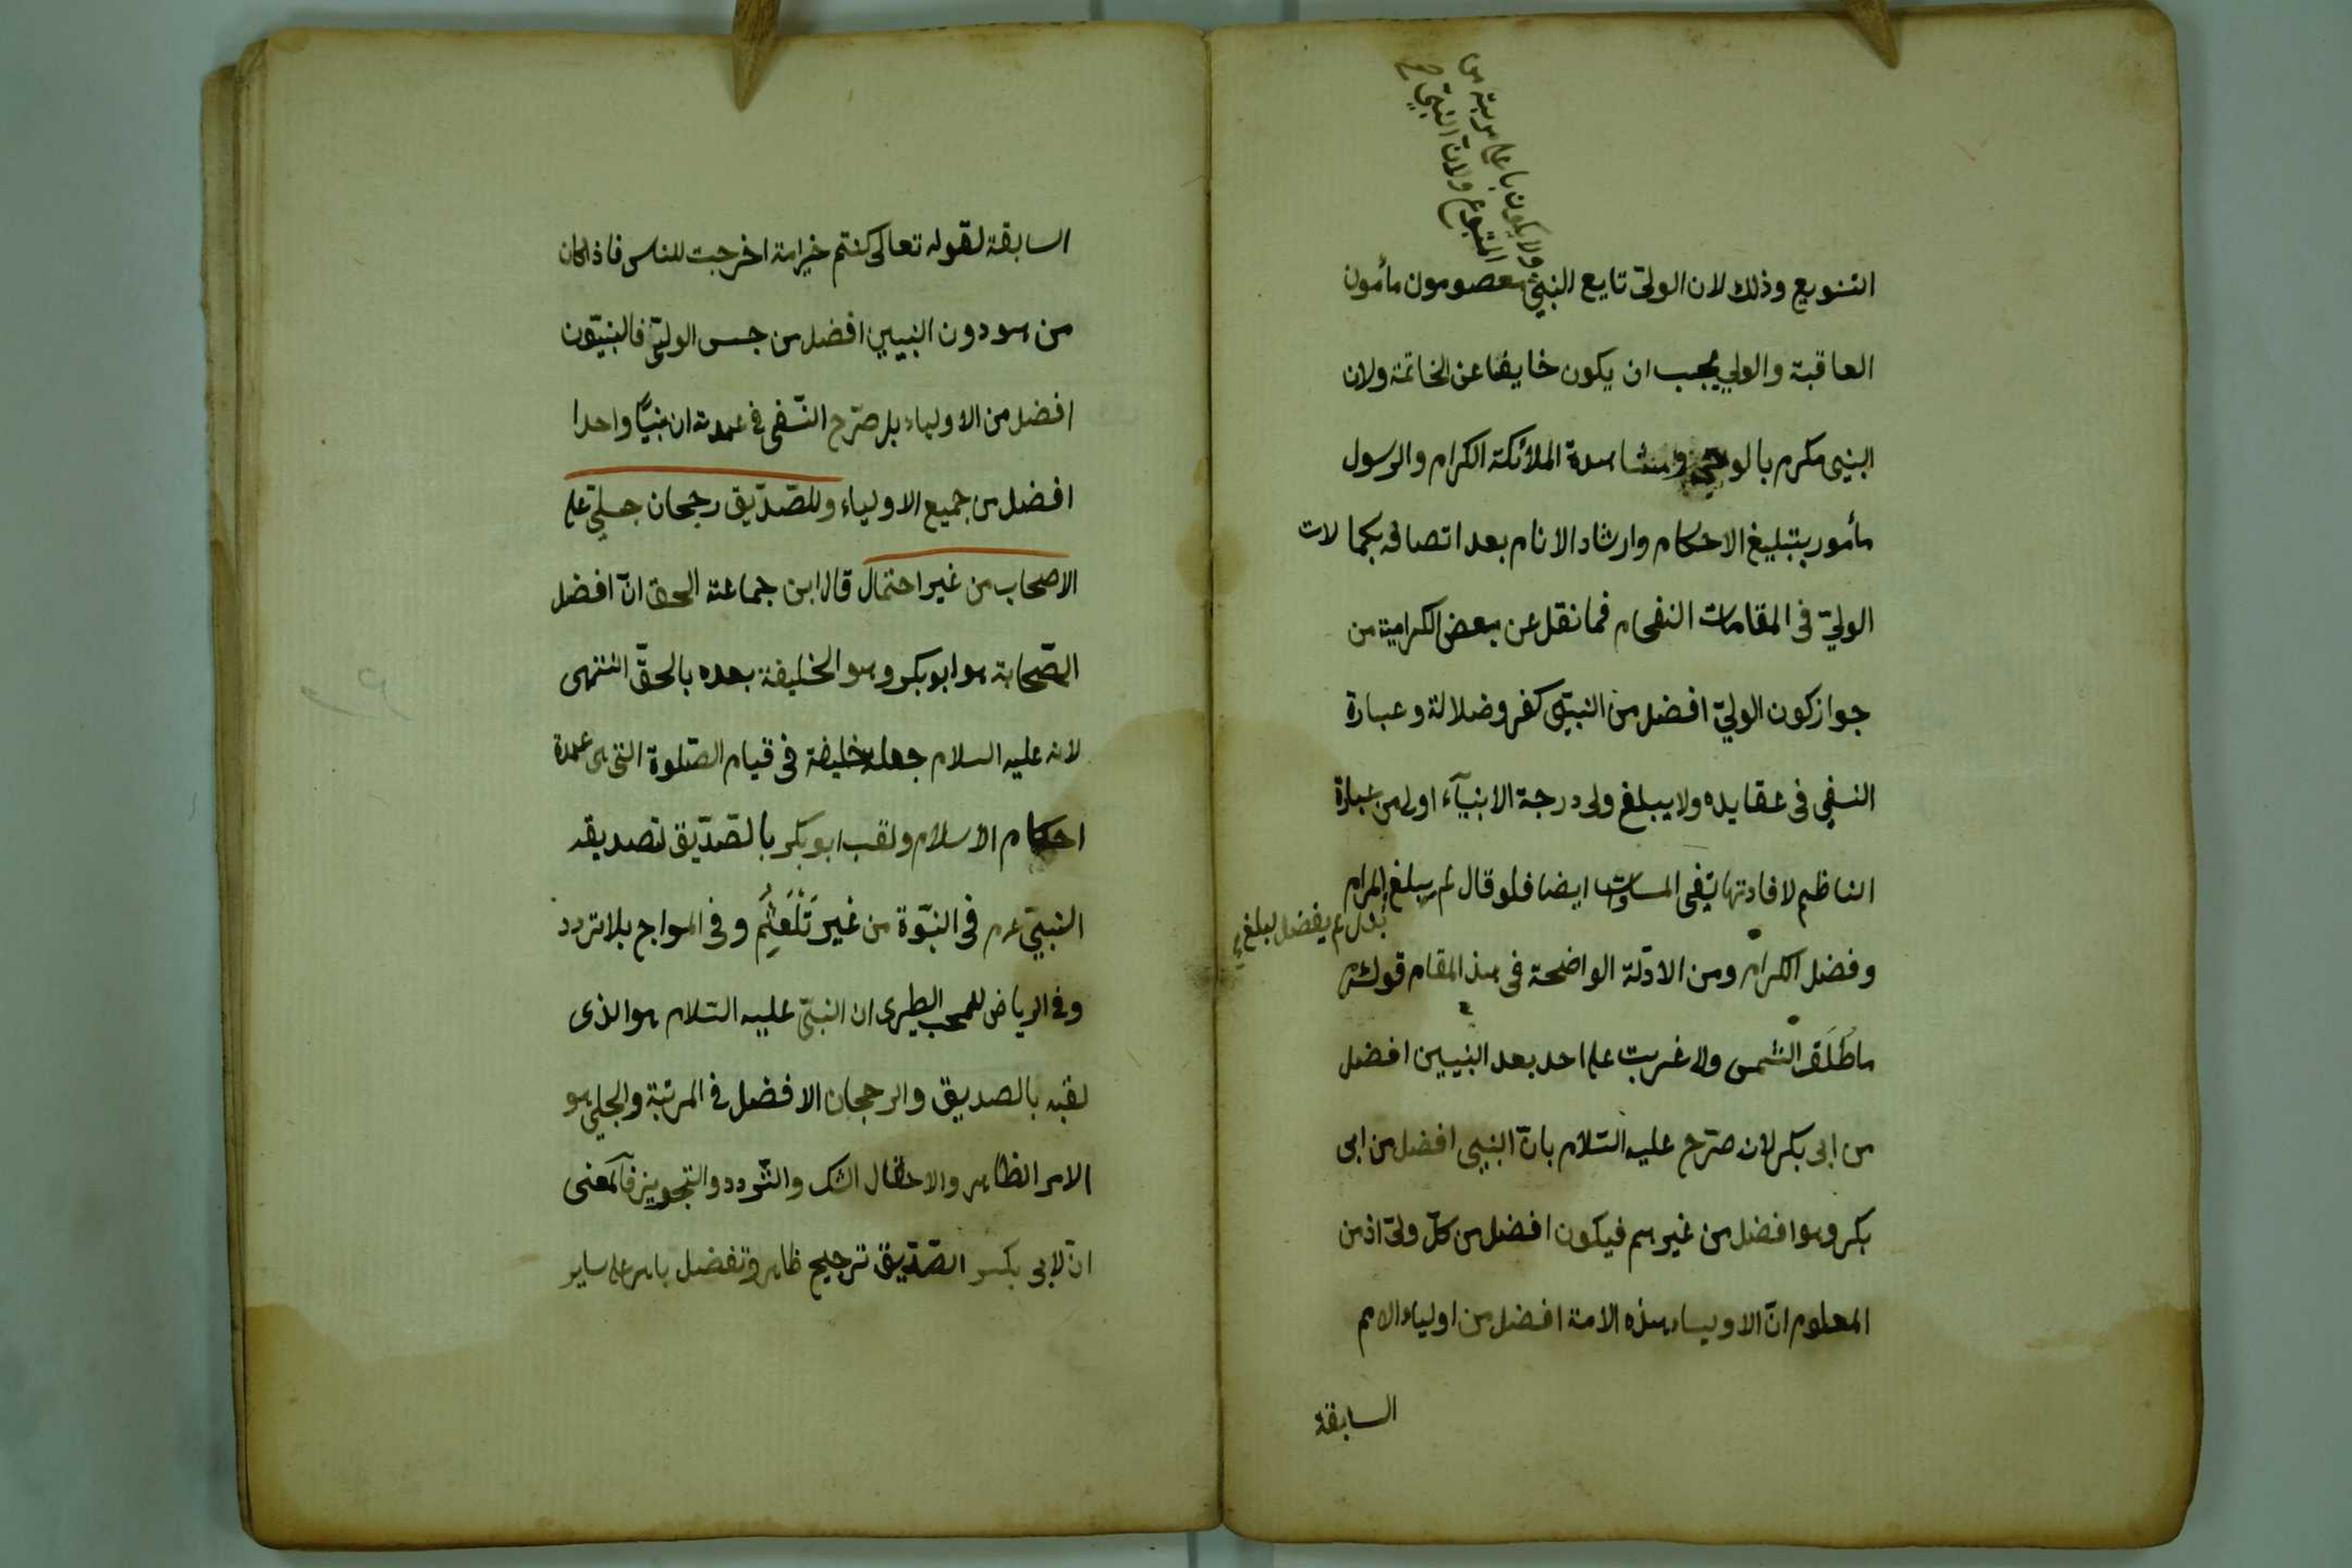 ولا يكون باعلى مرتبة من
المتبوع ولان النبي صح
التنويع وذلك لان الولي تابع النبي معصومون مأمون
العاقبة والولي يجب ان يكون خايفا عن الخاتمة ولان
النبي مكرم بالوحي ومشاهدة الملائكة الكرام والرسول
مأمور بتبليغ الاحكام وارشاد الانام بعد اتصافه بكمالات
الولي في المقامات الفخام فما نقل عن بعض الكرامية من
جواز كون الولي افضل من النبي كفر وضلالة وعبارة
النسفي في عقايده ولا يبلغ ولي درجة الانبيآء اولى من عبارة
الناظم لافادتها نفي المساوات ايضا فلو قال لم يبلغ المرام
بدل لم يفضل لبلغ
وفضل الكرام ومن الادلة الواضحة في هذا المقام قوله
ما طلعت الشمس ولا غربت على احد بعد النبيين افضل
من ابي بكر لانه صرّح عليه السّلام بانّ النبي افضل من ابي
بكر وهو افضل من غيرهم فيكون افضل من كلّ وليّ اذ من
المعلوم انّ الاولياء هذه الامة افضل من اولياء الامم
السابقة
السابقة لقوله تعالى كنتم خير امة اخرجت للناس فاذا كان
من هو دون النبيين افضل من جنس الوليّ فالنبيّون
افضل من الاولياء بل صرّح النّسفي في عمدته ان نبيّا واحدا
افضل من جميع الاولياء وللصّدّيق رجحان جليّ على
الاصحاب من غير احتمال قال ابن جماعة الحق انّ افضل
الصّحابة هو ابو بكر وهو الخليفة بعده بالحقّ انتهى
لانه عليه السلام جعله خليفة في قيام الصّلوة التي هي عمدة
احكام الاسلام ولقب ابو بكر بالصّدّيق لتصديقه
النبيّ عم في النبّوة من غير تَلَعْثُمٍ وفي المعراج بلا تردد
وفي الرياض للمحب الطبري ان النبيّ عليه السّلام هو الذي
لقبه بالصديق والرجحان الافضل في المرتبة والجلي هو
الامر الظاهر والاحتمال الشك والتّردد والتجويز فالمعنى
انّ لابي بكر الصّدّيق ترجيح ظاهر وتفضل باهر على ساير